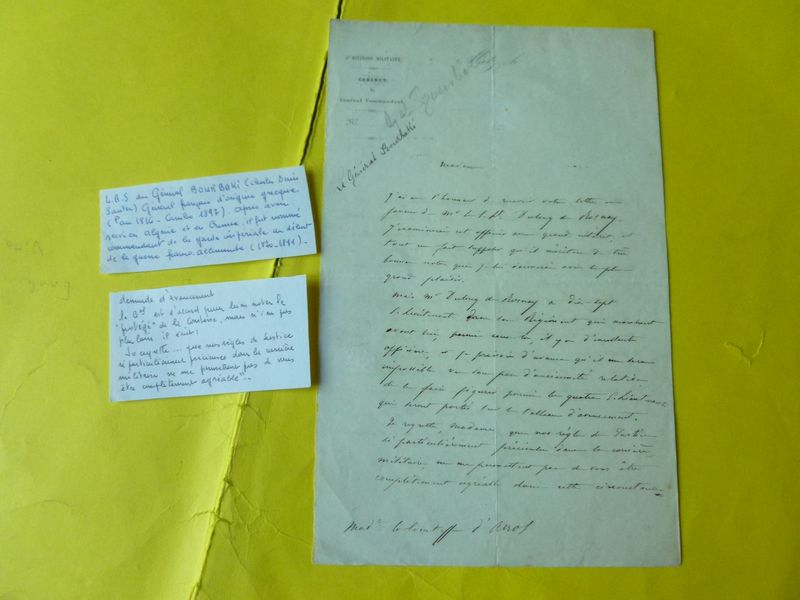 L.B.S du Général BOURBAKI (Charles Denis
Sauter) Général français d'origine grecque
(Pau 1816 - 1897). Après avoir
servi en Algérie et en Crimée, il fut nommé
commandant de la garde impériale au début
de la guerre franco-allemande (1870-1871).
demande d'avancement
le Gal est d'accord pour bien noter le
"protégé" de la Comtesse, mais n'ira pas
plus loin il écrit :
Je regrette... que nos règles de justice
si particulièrement précieuses dans la carrière
militaire ne me permettent pas de vous
être complètement agréable"...
DIVISION MILITAIRE
CABINET
du
Général Commandant
N°
Le Général Bourbaki
Madame
J'ai eu l'honneur de recevoir votre lettre en
faveur de Mr le S. Lt. Dubuy de
J'examinerai cet officier avec grand intérêt, et
tout me fait supposer qu'il méritera de très
bonnes notes que je lui donnerai avec le plus
grand plaisir.
Mais Mr a dix-sept
S. lieutenants dans son Régiment qui marchent
avant lui, parmi eux, il y a d'excellents
officiers, et je prévois d'avance qu'il me sera
impossible vu son peu d'ancienneté relative
de le faire figurer parmi les quatre S. lieutenants
qui seront portés sur le tableau d'avancement.
Je regrette, Madame que nos règles de Justice
si particulièrement précieuses dans la carrière
militaire, ne me permettent pas de vous être
complètement agréable dans cette circonstance.
Made la Comtesse d'